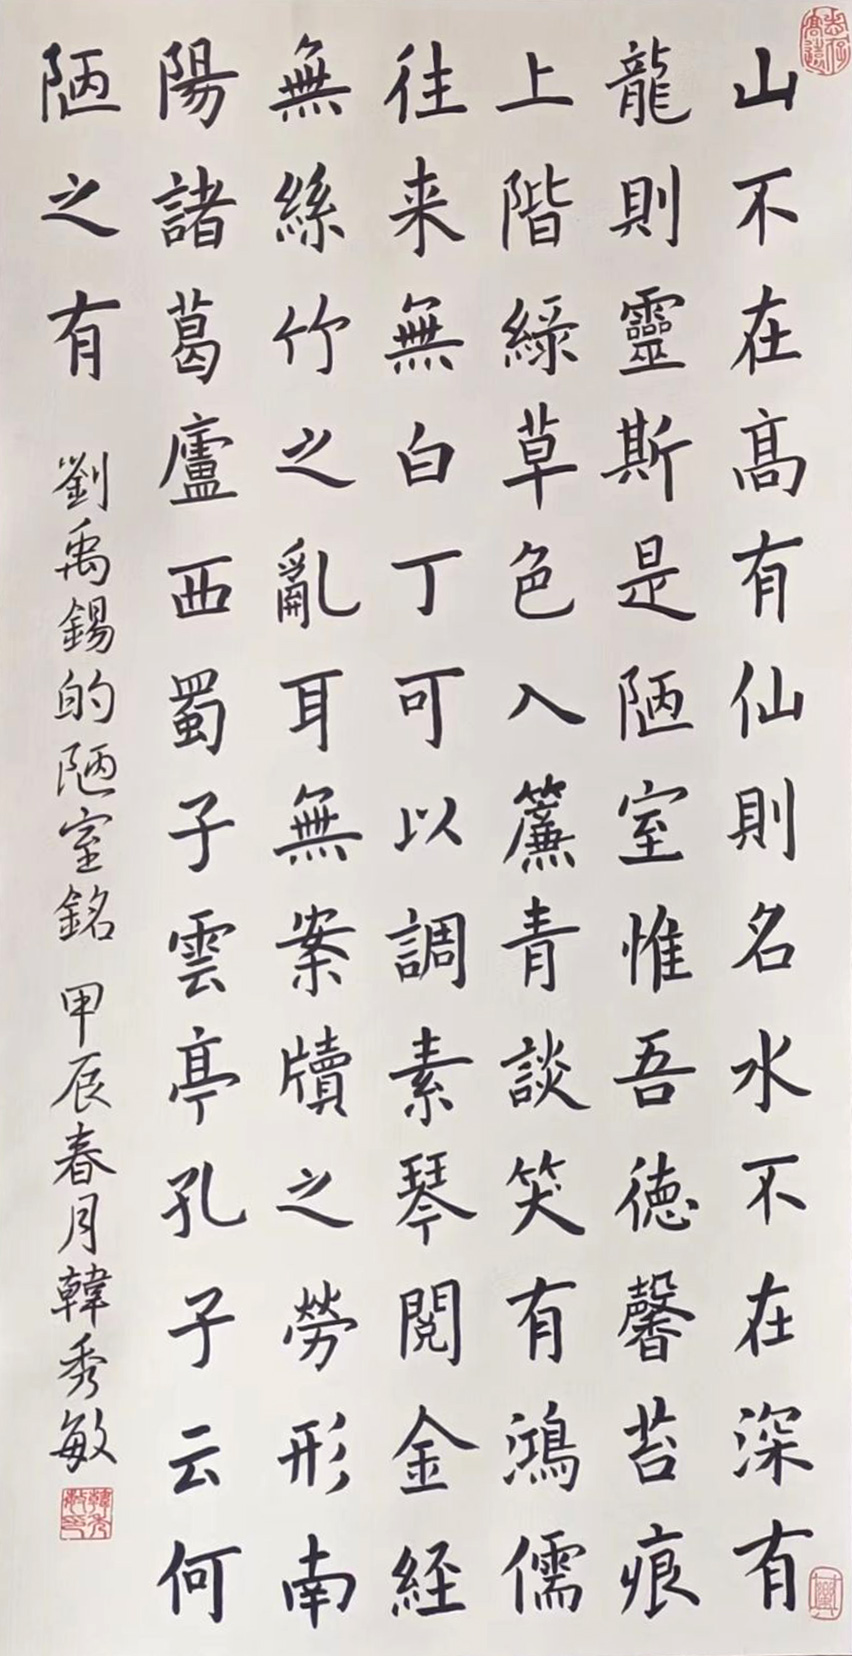 山不在高有仙則名水不在深有
龍則靈斯是陋室惟吾德馨苔痕
上階綠草色入簾青談笑有鴻儒
往来無白丁可以調素琴閱金経
無絲竹之亂耳無案牘之勞形南
陽諸葛廬西蜀子雲亭孔子云何
陋之有
劉禹錫的陋室銘 甲辰春月韓秀敏